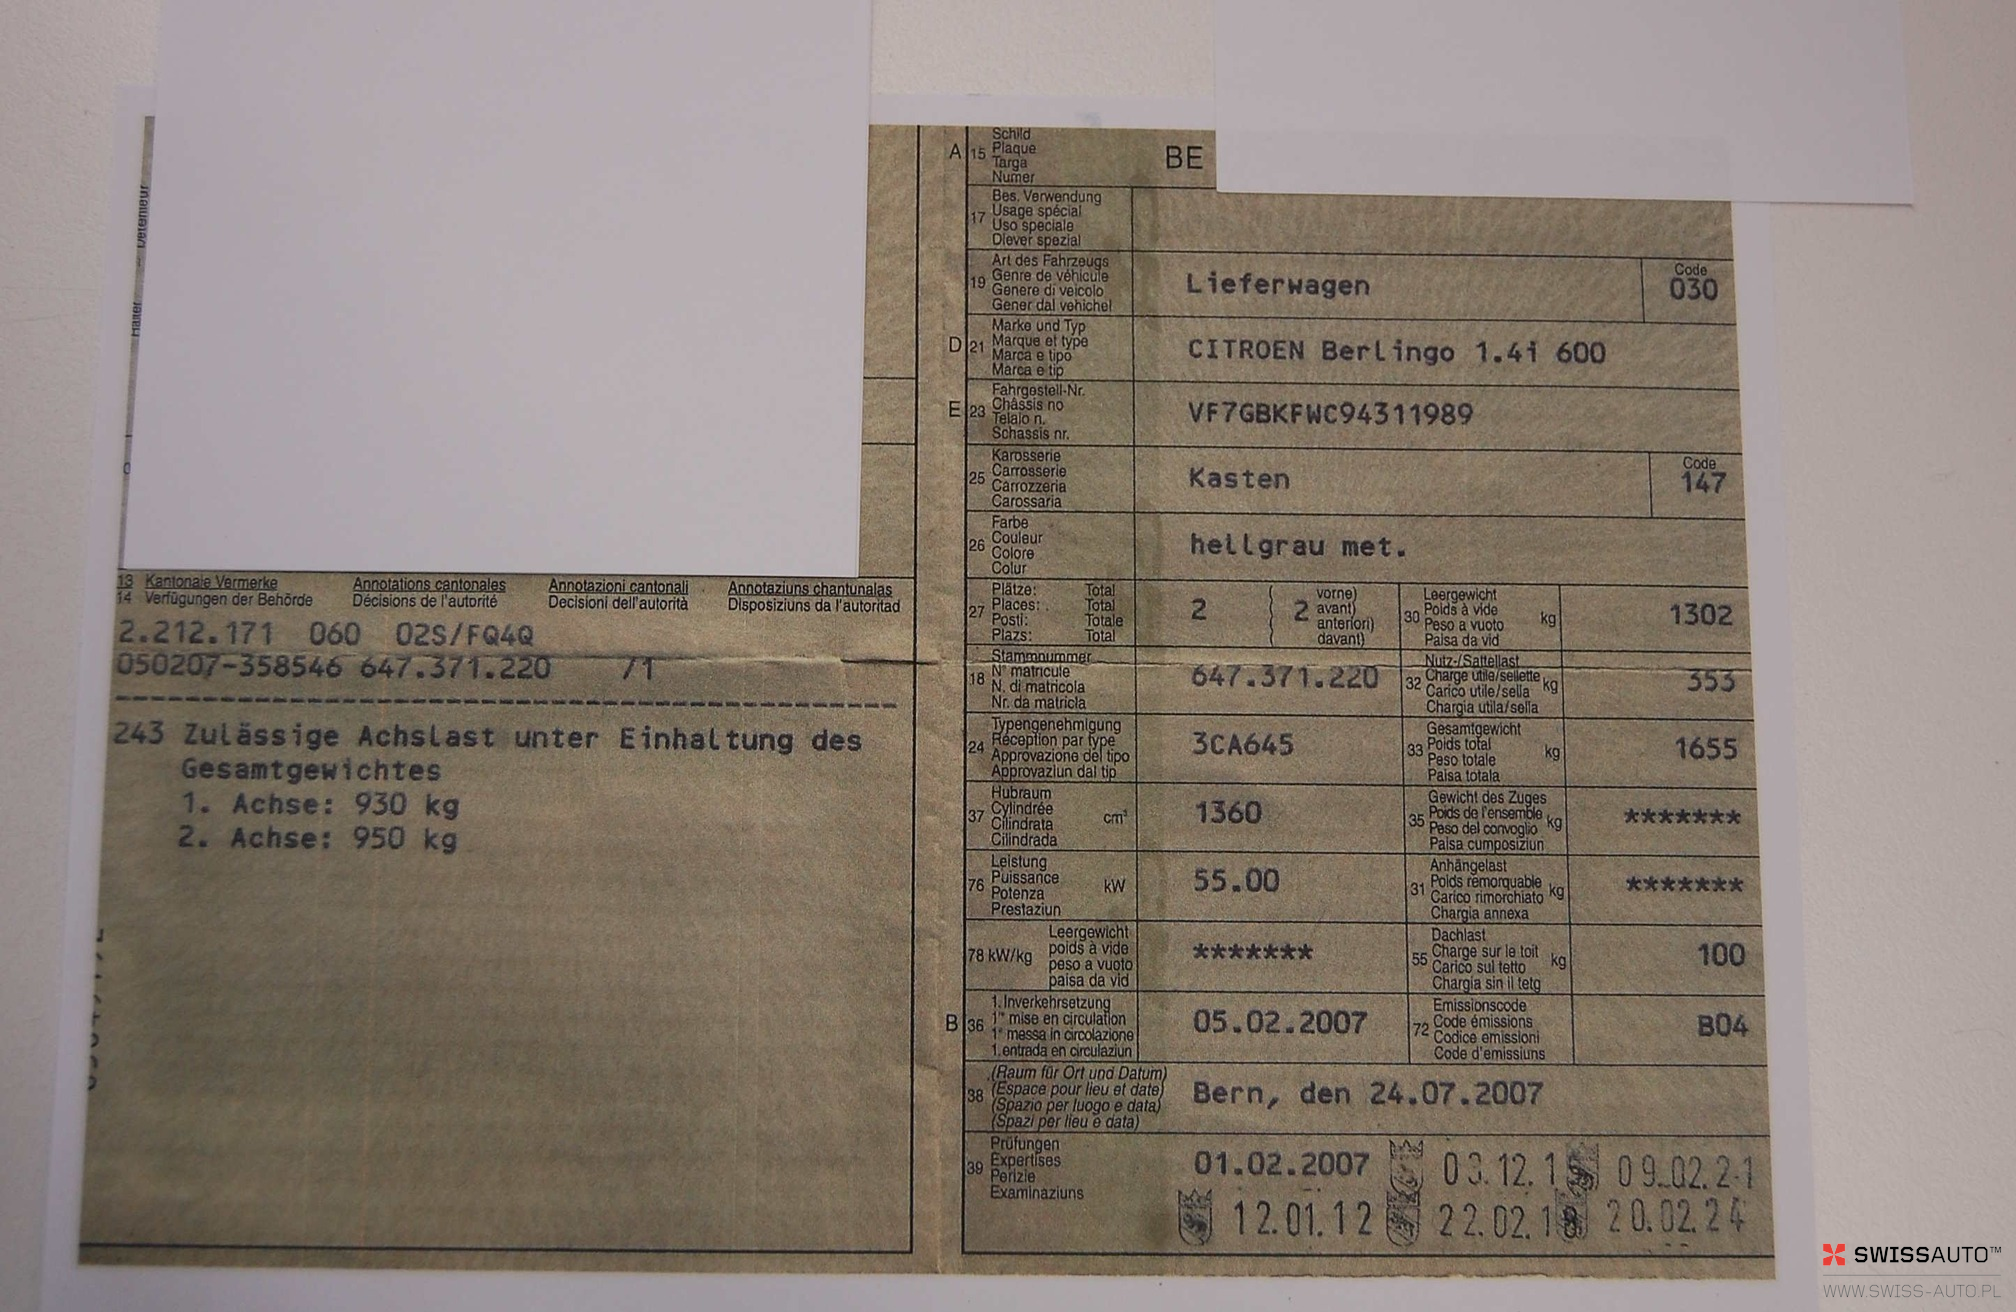 13 Kantonale Vermerke Annotations cantonales Annotazioni cantonali Annotaziuns chantunalas
14 Verfügungen der Behörde Décisions de l'autorité Decisioni dell'autorità Disposiziuns da l'autoritad
2.212.171 060 02S/FQ4Q
050207-358546 647.371.220 /1
243 Zulässige Achslast unter Einhaltung des
Gesamtgewichtes
1. Achse: 930 kg
2. Achse: 950 kg
A 15 Schild
Plaque
Targa
Numer
BE
17 Bes. Verwendung
Usage spécial
Uso speciale
Diever spezial
19 Art des Fahrzeugs
Genre de véhicule
Genere di veicolo
Gener dal vehichel
Lieferwagen
Code
030
D 21 Marke und Typ
Marque et type
Marca e tipo
Marca e tip
CITROEN Berlingo 1.4i 600
E 23 Fahrgestell-Nr.
Châssis no
Telaio n.
Schassis nr.
VF7GBKFWC94311989
25 Karosserie
Carrosserie
Carrozzeria
Carossaria
Kasten
Code
147
26 Farbe
Couleur
Colore
Colur
hellgrau met.
27 Plätze: Total
Places: Total
Posti: Totale
Plazs: Total
2
2
vorne)
avant)
anteriori)
davant)
30 Leergewicht
Poids à vide
Peso a vuoto
Paisa da vid
kg
1302
18 Stammnummer
N° matricule
N. di matricola
Nr. da matricla
647.371.220
32 Nutz-/Sattellast
Charge utile/sellette
Carico utile/sella
Chargia utila/sella
kg
353
24 Typengenehmigung
Réception par type
Approvazione del tipo
Approvaziun dal tip
3CA645
33 Gesamtgewicht
Poids total
Peso totale
Paisa totala
kg
1655
37 Hubraum
Cylindrée
Cilindrata
Cilindrada
cm³
1360
35 Gewicht des Zuges
Poids de l'ensemble
Peso del convoglio
Paisa cumposiziun
kg
*******
76 Leistung
Puissance
Potenza
Prestaziun
kW
55.00
31 Anhängelast
Poids remorquable
Carico rimorchiato
Chargia annexa
kg
*******
78 kW/kg Leergewicht
poids à vide
peso a vuoto
paisa da vid
*******
55 Dachlast
Charge sur le toit
Carico sul tetto
Chargia sin il tetg
kg
100
B 36 1. Inverkehrsetzung
1re mise en circulation
1a messa in circolazione
1. entrada en circulaziun
05.02.2007
72 Emissionscode
Code émissions
Codice emissioni
Code d'emissiuns
B04
38 (Raum für Ort und Datum)
(Espace pour lieu et date)
(Spazio per luogo e data)
(Spazi per lieu e data)
Bern, den 24.07.2007
39 Prüfungen
Expertises
Perizie
Examinaziuns
01.02.2007 03.12.1 09.02.21
12.01.12 22.02.1 20.02.24
SWISSAUTO™
WWW.SWISS-AUTO.PL